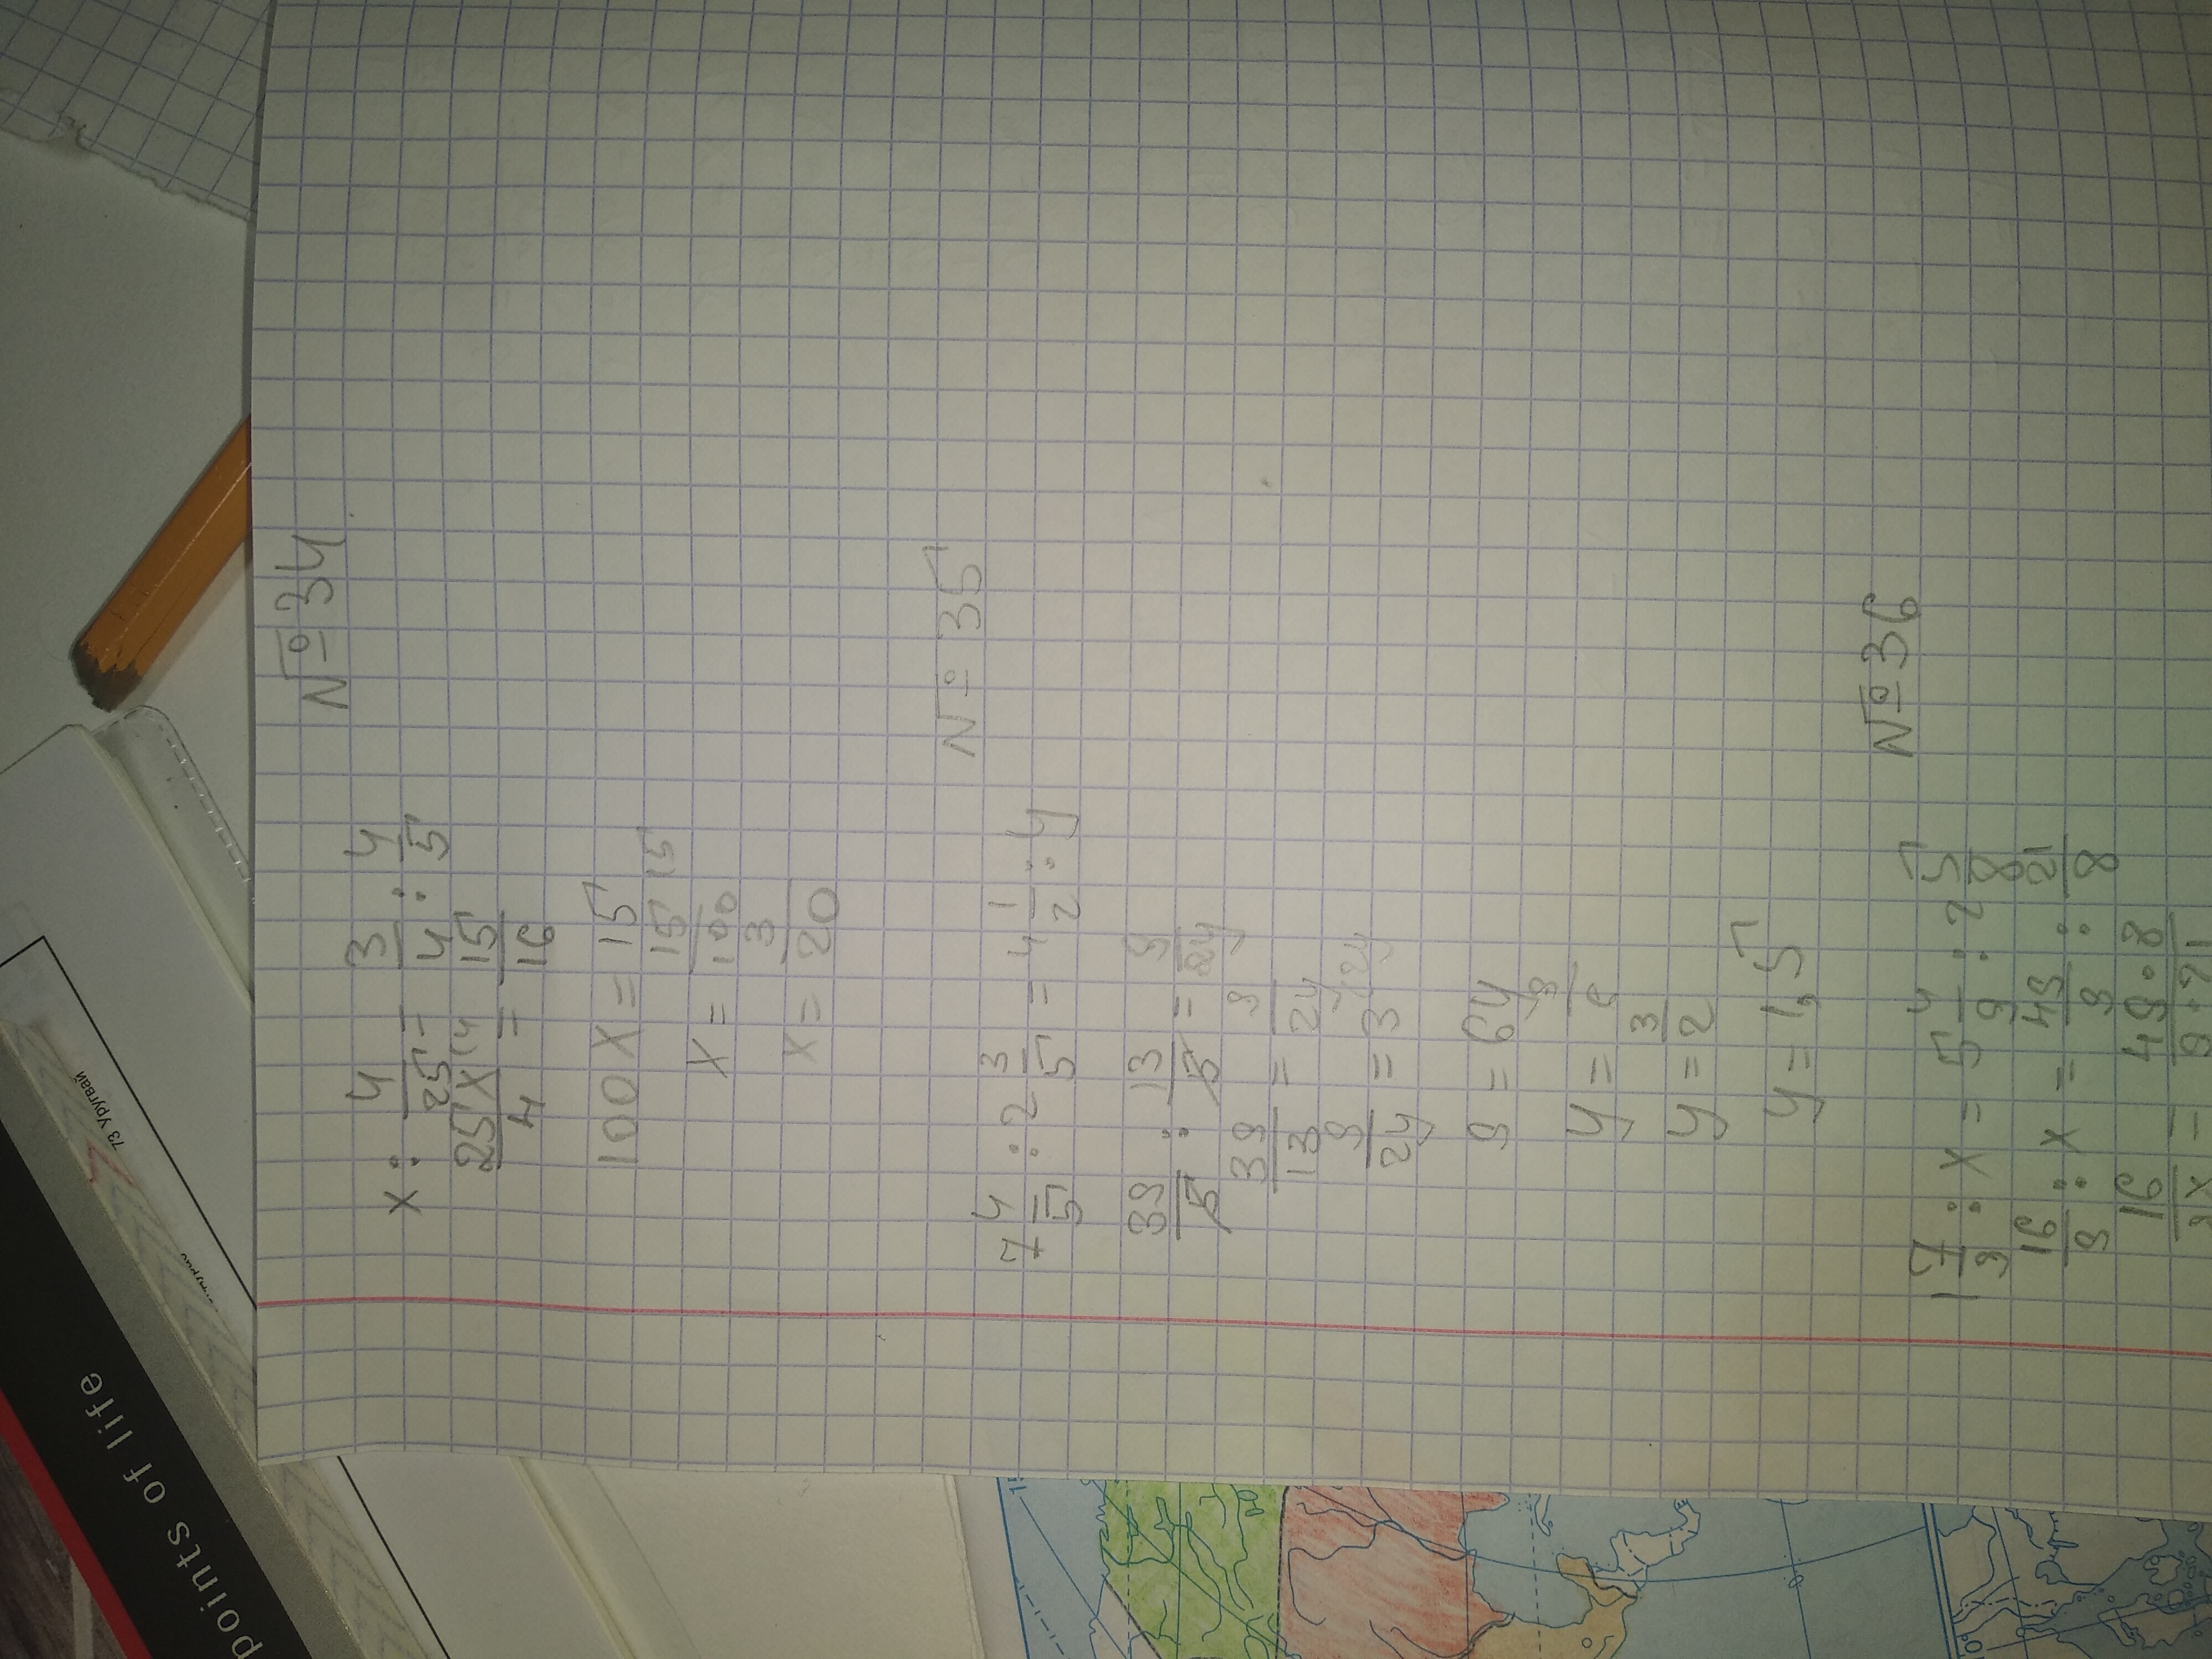 № 34
x : 4/25 = 3/4 : 4/5
25x/4 (4 = 15/16
100x = 15
x = 15/100 (5
x = 3/20
№ 35
7 4/5 : 2 3/5 = 4 1/2 : y
39/5 : 13/5 = 9/2y
39/13 = 9/2y
9/2y = 3
9 = 6y
y = 3/2
y = 1,5
№ 36
1 7/9 : x = 5 4/9 : 2 5/8
16/9 : x = 49/9 : 21/8
16/9x = 49·8/9·21
points of life
73 Уругвай